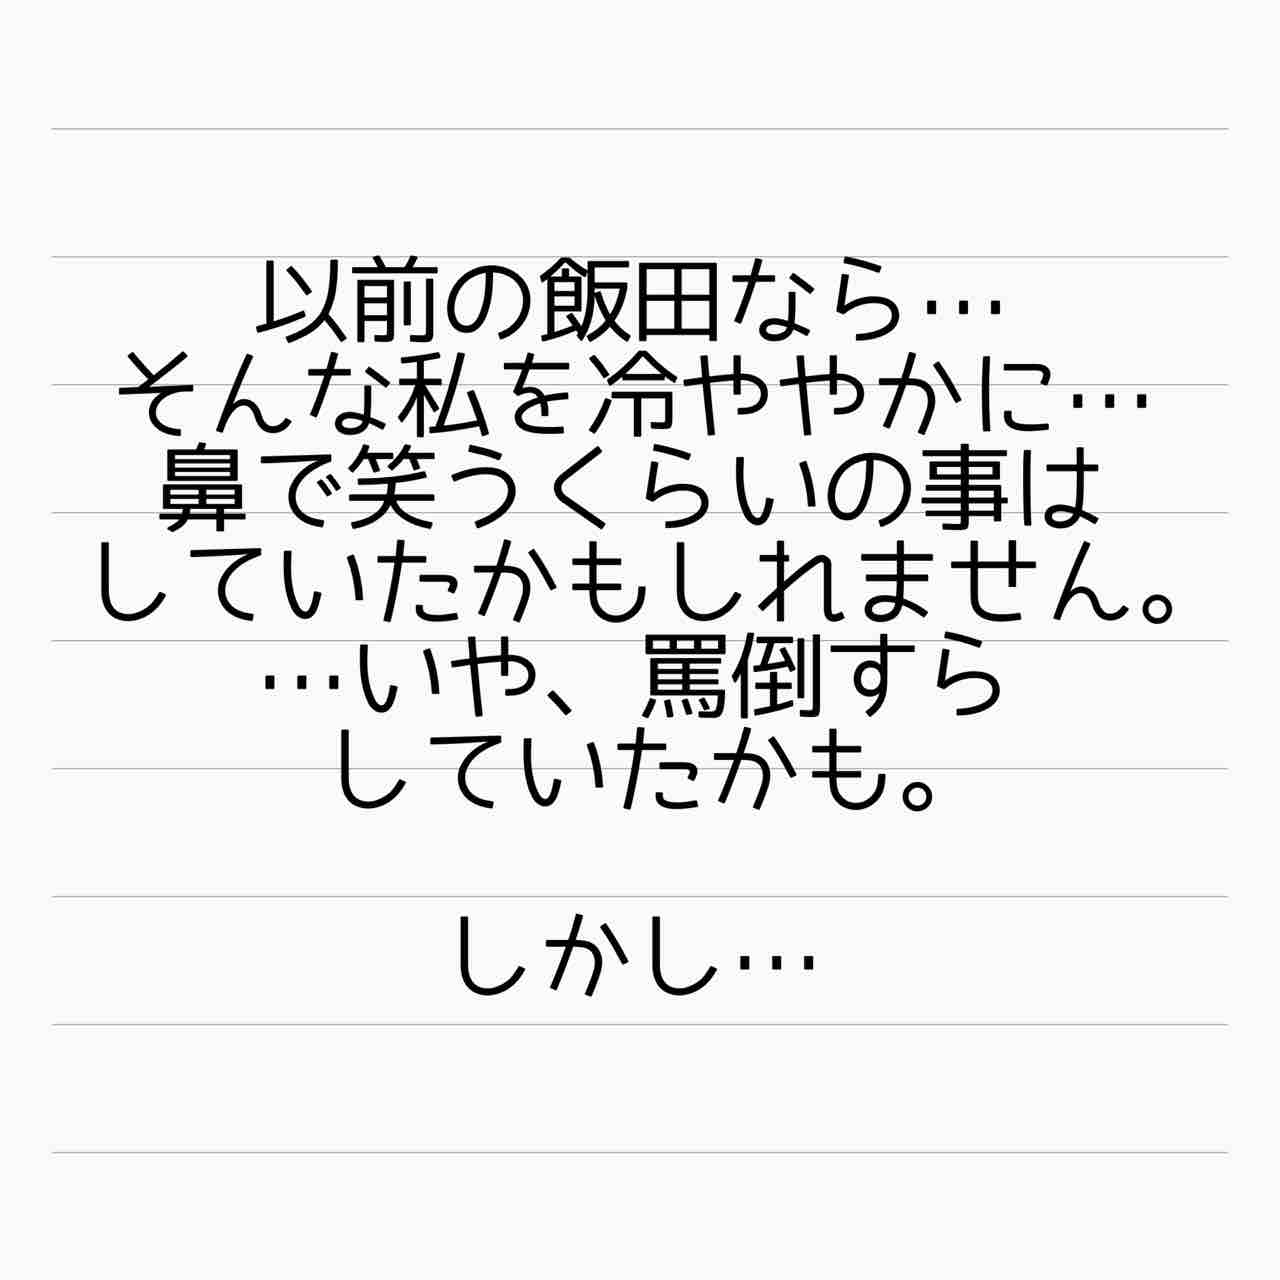 以前の飯田なら…
そんな私を冷ややかに…
鼻で笑うくらいの事は
していたかもしれません。
…いや、罵倒すら
していたかも。
しかし…